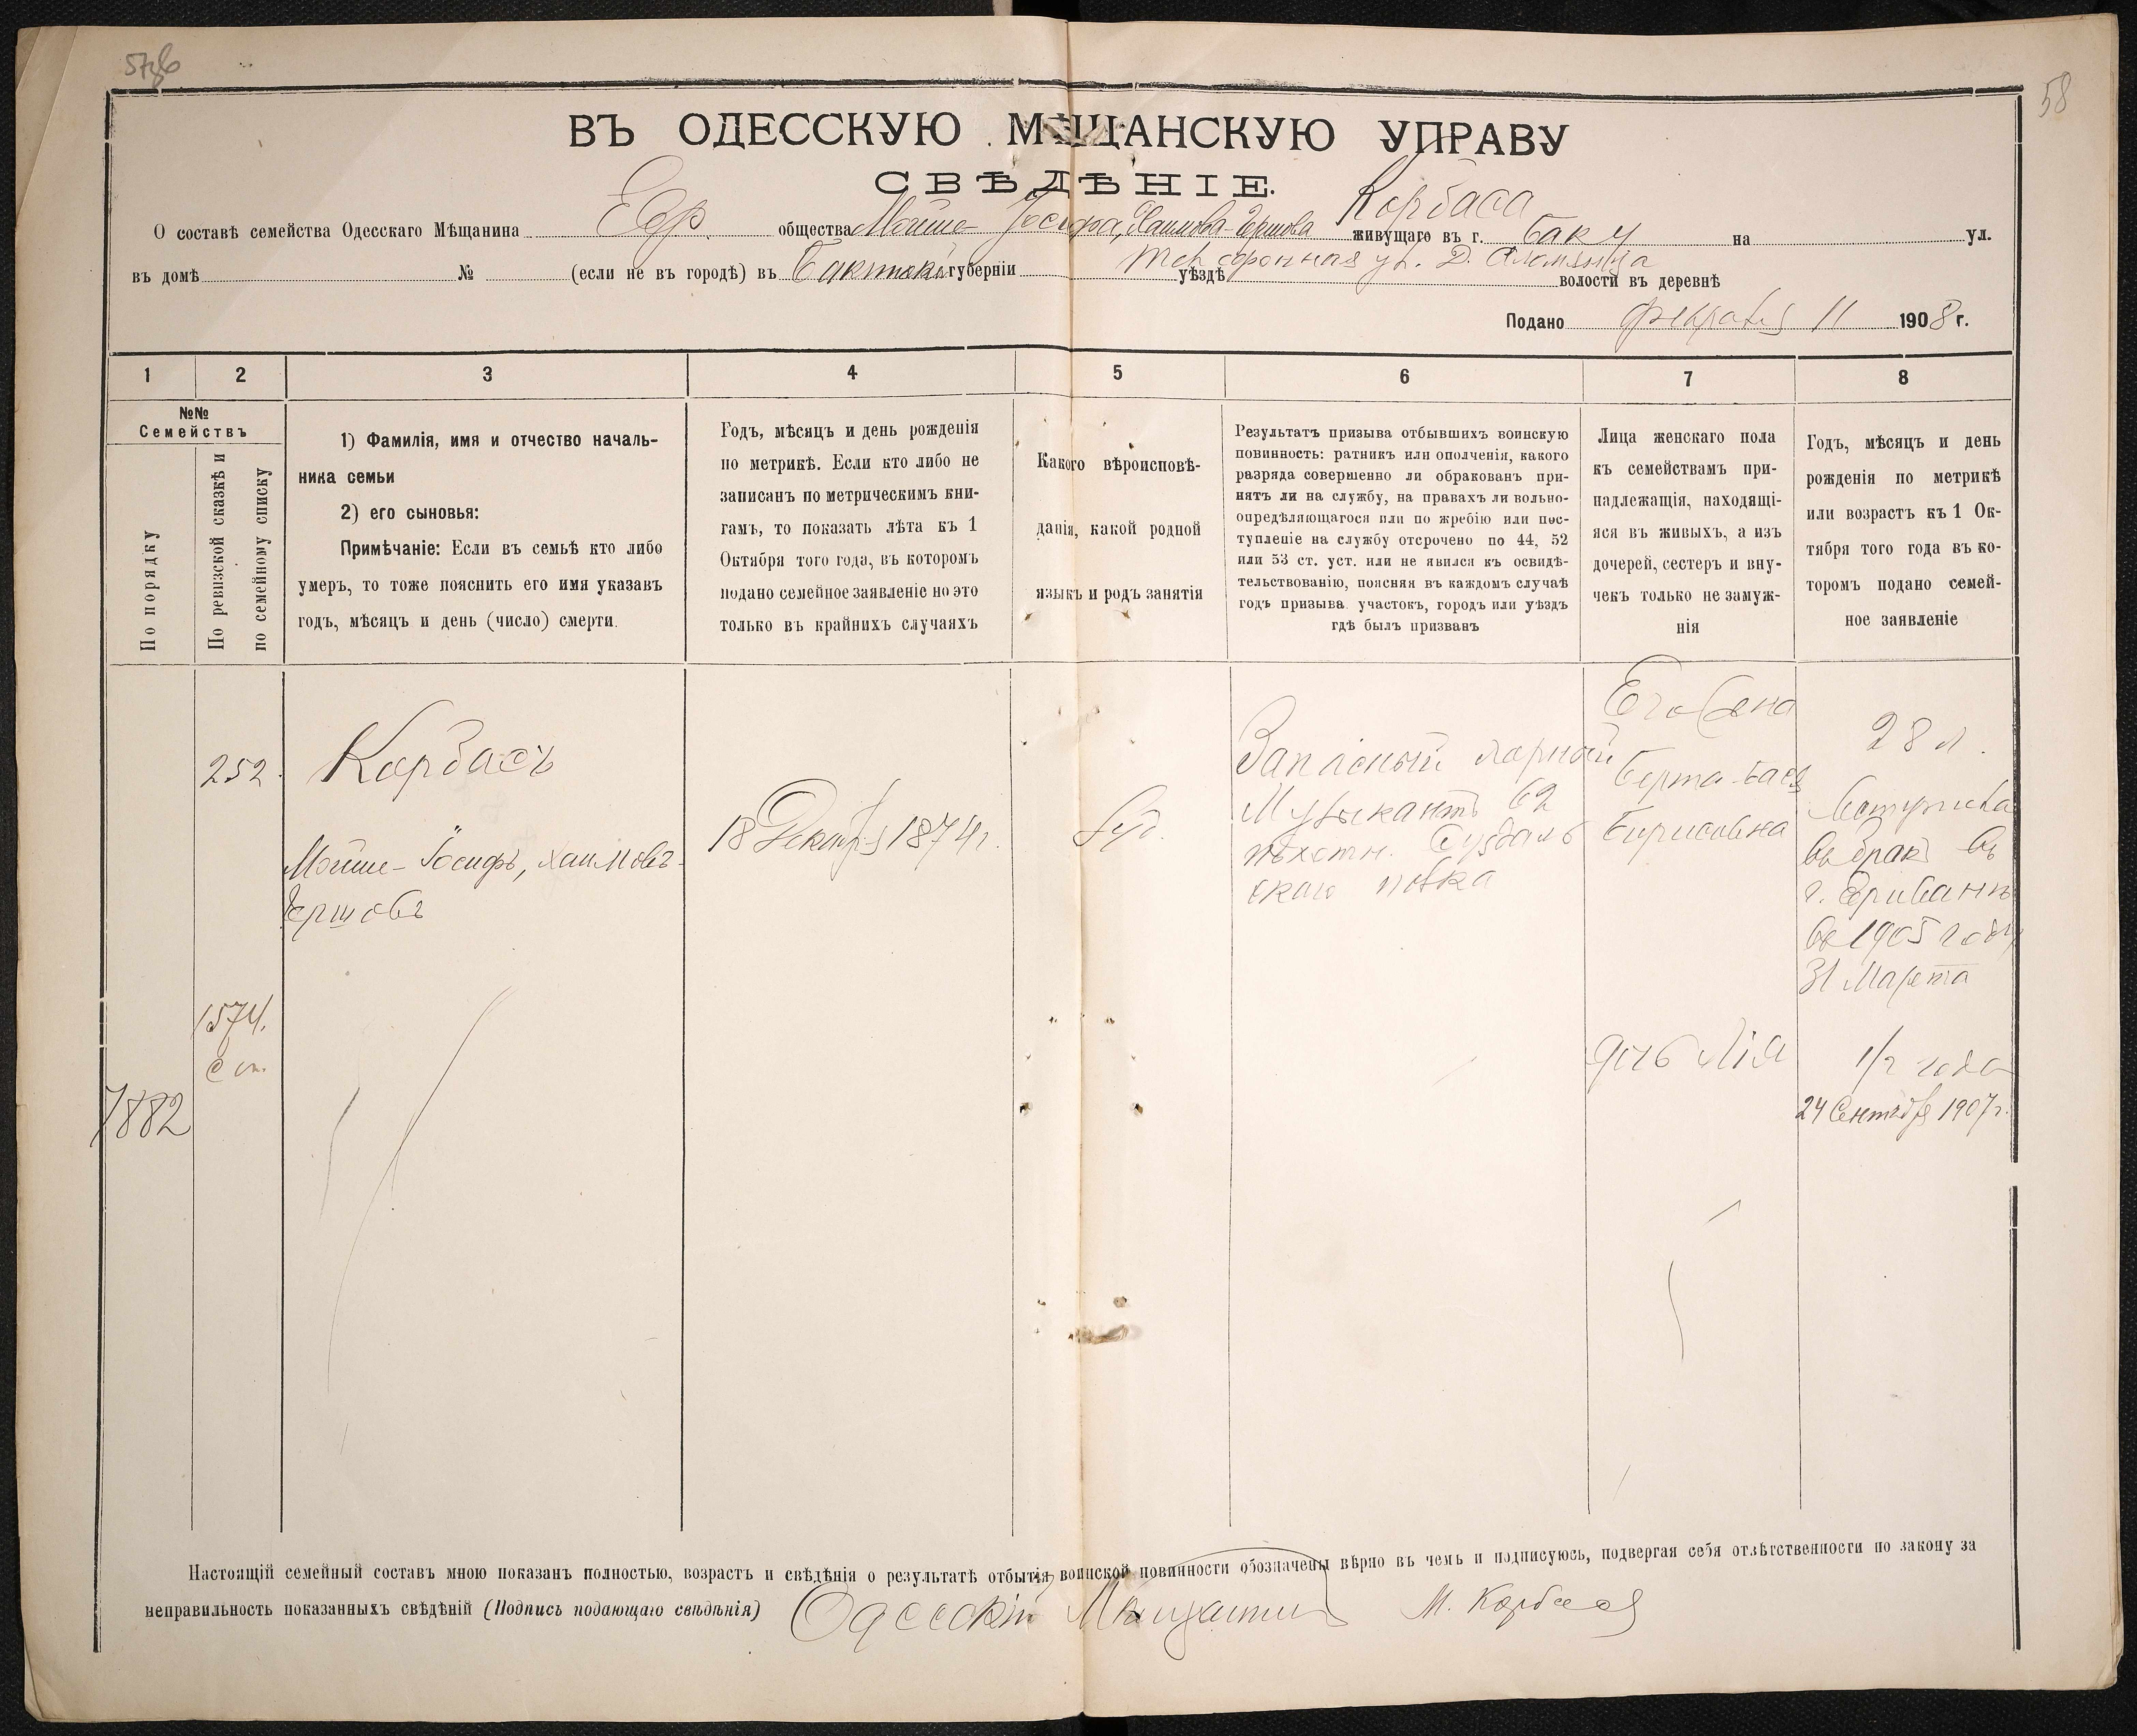 58
ВЪ ОДЕССКУЮ МѢЩАНСКУЮ УПРАВУ
СВѢДѢНІЕ.
О составѣ семейства Одесскаго Мѣщанина Евр. общества Мойше-Іосифа, Хаимова-Гершова Корбаса живущаго въ г. Баку на ул.
въ домѣ № (если не въ городѣ) въ Бакинской губерніи Телефонная ул. Д. уѣздѣ волости въ деревнѣ
Подано Февраля 11 1908 г.
1 2 3 4 5 6 7 8
№№
Семействъ
По порядку
По ревизской сказкѣ и
по семейному списку
1) Фамилія, имя и отчество началь-
ника семьи
2) его сыновья:
Примѣчаніе: Если въ семьѣ кто либо
умеръ, то тоже пояснить его имя указавъ
годъ, мѣсяцъ и день (число) смерти.
Годъ, мѣсяцъ и день рожденія
по метрикѣ. Если кто либо не
записанъ по метрическимъ кни-
гамъ, то показать лѣта къ 1
Октября того года, въ которомъ
подано семейное заявленіе но это
только въ крайнихъ случаяхъ
Какого вѣроисповѣ-
данія, какой родной
языкъ и родъ занятія
Результатъ призыва отбывшихъ воинскую
повинность: ратникъ или ополченія, какого
разряда совершенно ли обракованъ при-
нятъ ли на службу, на правахъ ли вольно-
опредѣляющагося или по жребію или пос-
тупленіе на службу отсрочено по 44, 52
или 53 ст. уст. или не явился къ освидѣ-
тельствованію, поясняя въ каждомъ случаѣ
годъ призыва участокъ, городъ или уѣздъ
гдѣ былъ призванъ
Лица женскаго пола
къ семействамъ при-
надлежащія, находящі-
яся въ живыхъ, а изъ
дочерей, сестеръ и вну-
чекъ только не замуж-
нія
Годъ, мѣсяцъ и день
рожденія по метрикѣ
или возрастъ къ 1 Ок-
тября того года въ ко-
торомъ подано семей-
ное заявленіе
7882
252.
1574.
Корбасъ
Мойше-Іосифъ, Хаимовъ-
Гершовъ
18 Декабря 1874 г.
Іуд.
Запасный
Музыкантъ 62
пѣхотн. Суздаль
скаго полка
Его жена
Берта-Бася
Борисовна
дочь Лія
28 л.
Вступила
въ бракъ въ
г. Эривань
въ 1905 году
31 Марта
1/2 года
24 Сентября 1907 г.
Настоящій семейный составъ мною показанъ полностью, возрастъ и свѣдѣнія о результатѣ отбытія воинской повинности обозначены вѣрно въ чемъ и подписуюсь, подвергая себя отвѣтственности по закону за
неправильность показанныхъ свѣдѣній (Подпись подающаго свѣдѣнія) Одесскій Мѣщанинъ М. Корбасъ